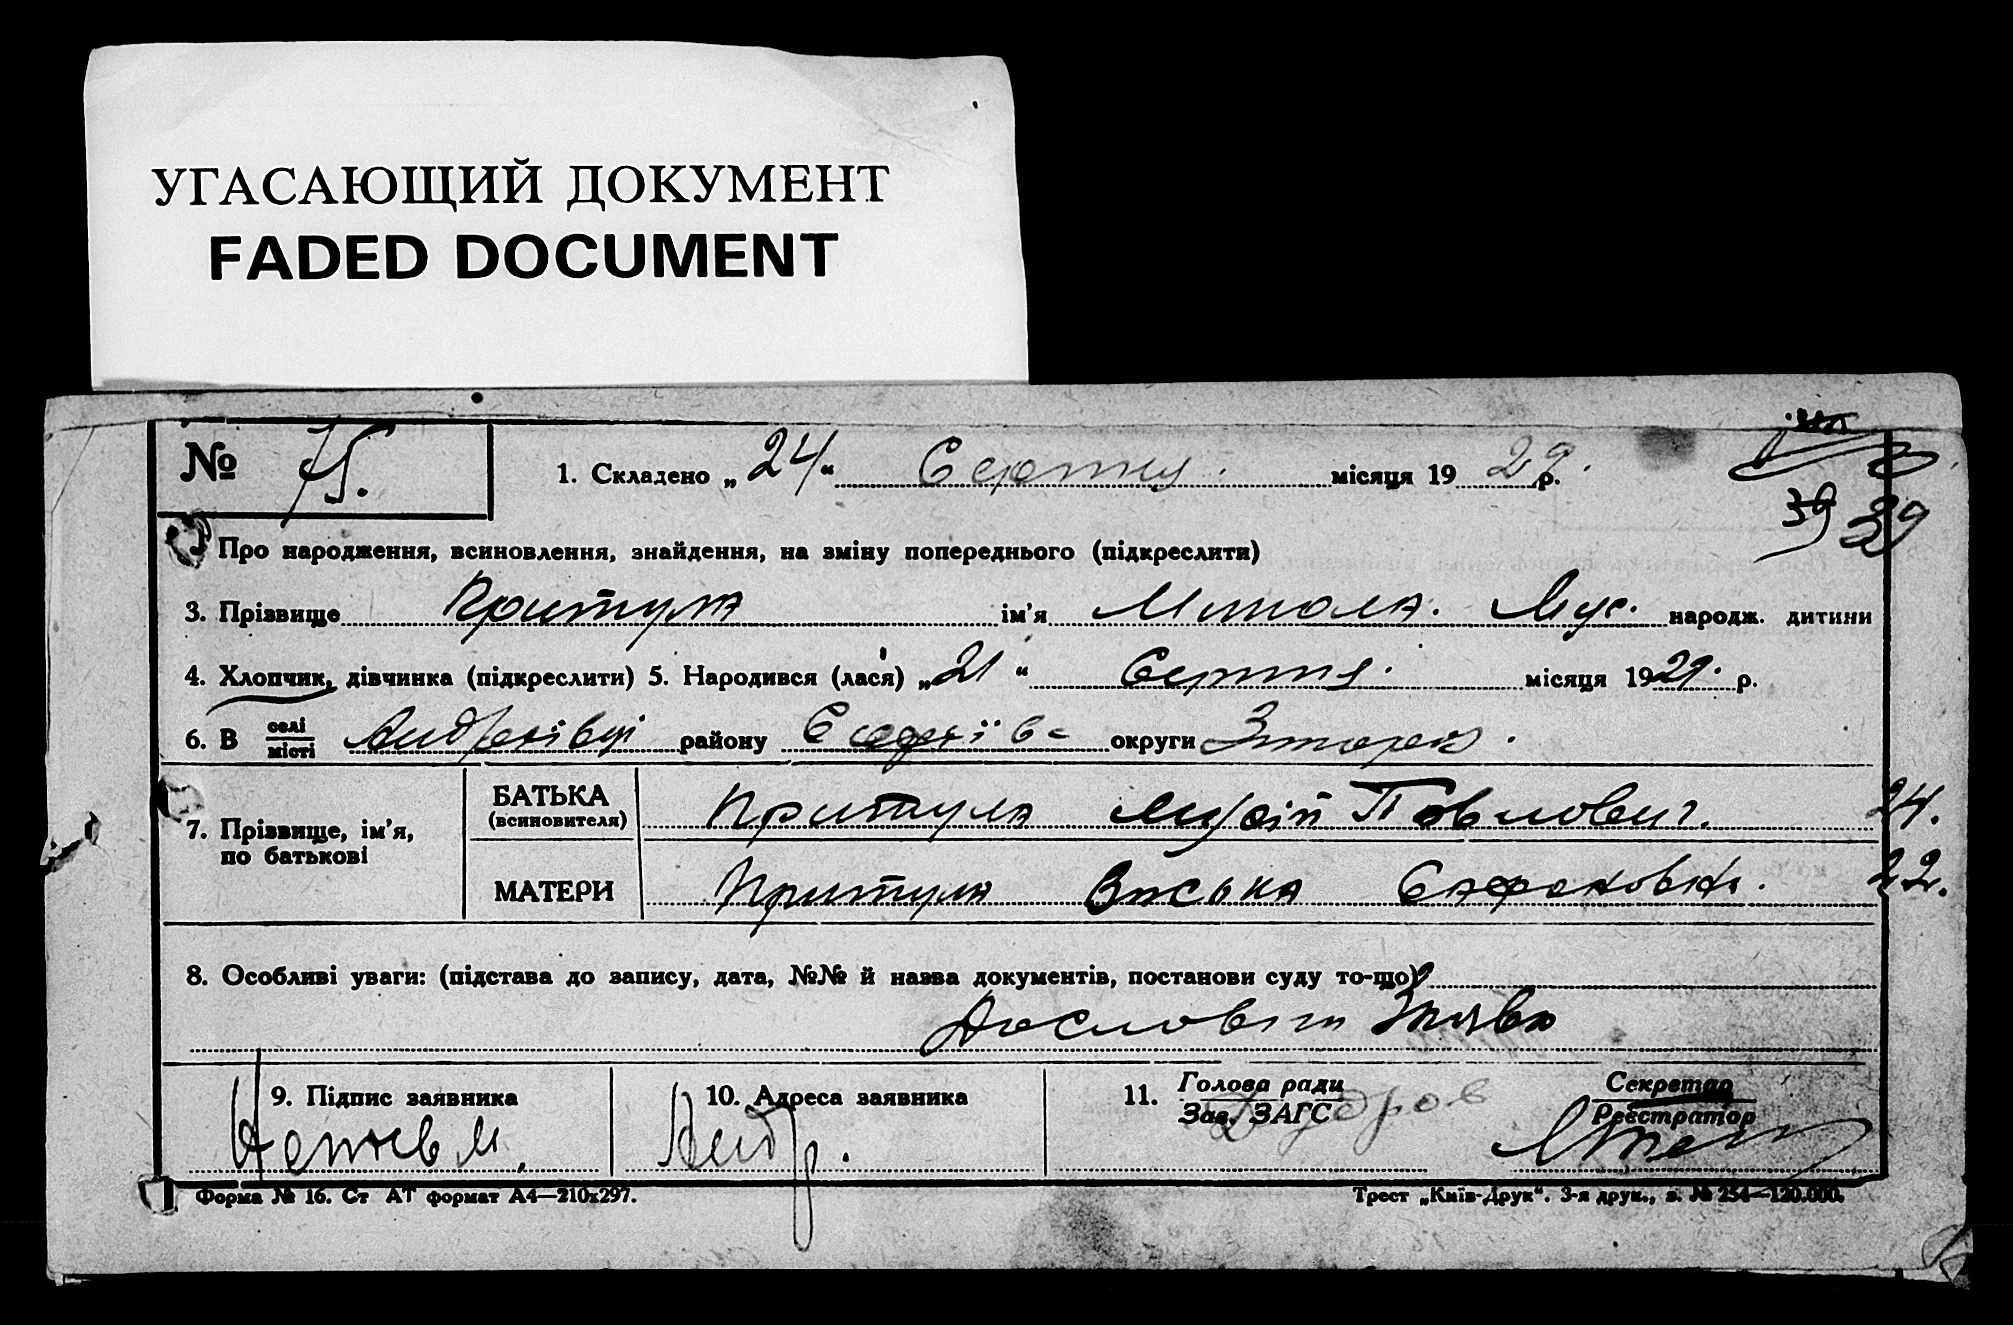 УГАСАЮЩИЙ ДОКУМЕНТ
FADED DOCUMENT
№ 75.
1. Складено „24“ Серпня. місяця 1929. р.
39 39
Про народження, всиновлення, знайдення, на зміну попереднього (підкреслити)
3. Прізвище Притула ім’я Микола. Мус. народж. дитини
4. Хлопчик, дівчинка (підкреслити) 5. Народився (лася) „21“ Серпня. місяця 1929. р.
6. В селі місті Андріївці району округи
7. Прізвище, ім’я, по батькові
БАТЬКА (всиновителя) Притула Мусій Павлович. 24.
МАТЕРИ Притула Васька 22.
8. Особливі уваги: (підстава до запису, дата, №№ й назва документів, постанови суду то-що)
9. Підпис заявника
10. Адреса заявника
Андр.
11. Голова ради
Зав. ЗАГС
Секретар
Реєстратор
Форма № 16. Ст АТ формат А4—210х297.
Трест „Київ-Друк“. 3-я друк., з. № 254—120.000.